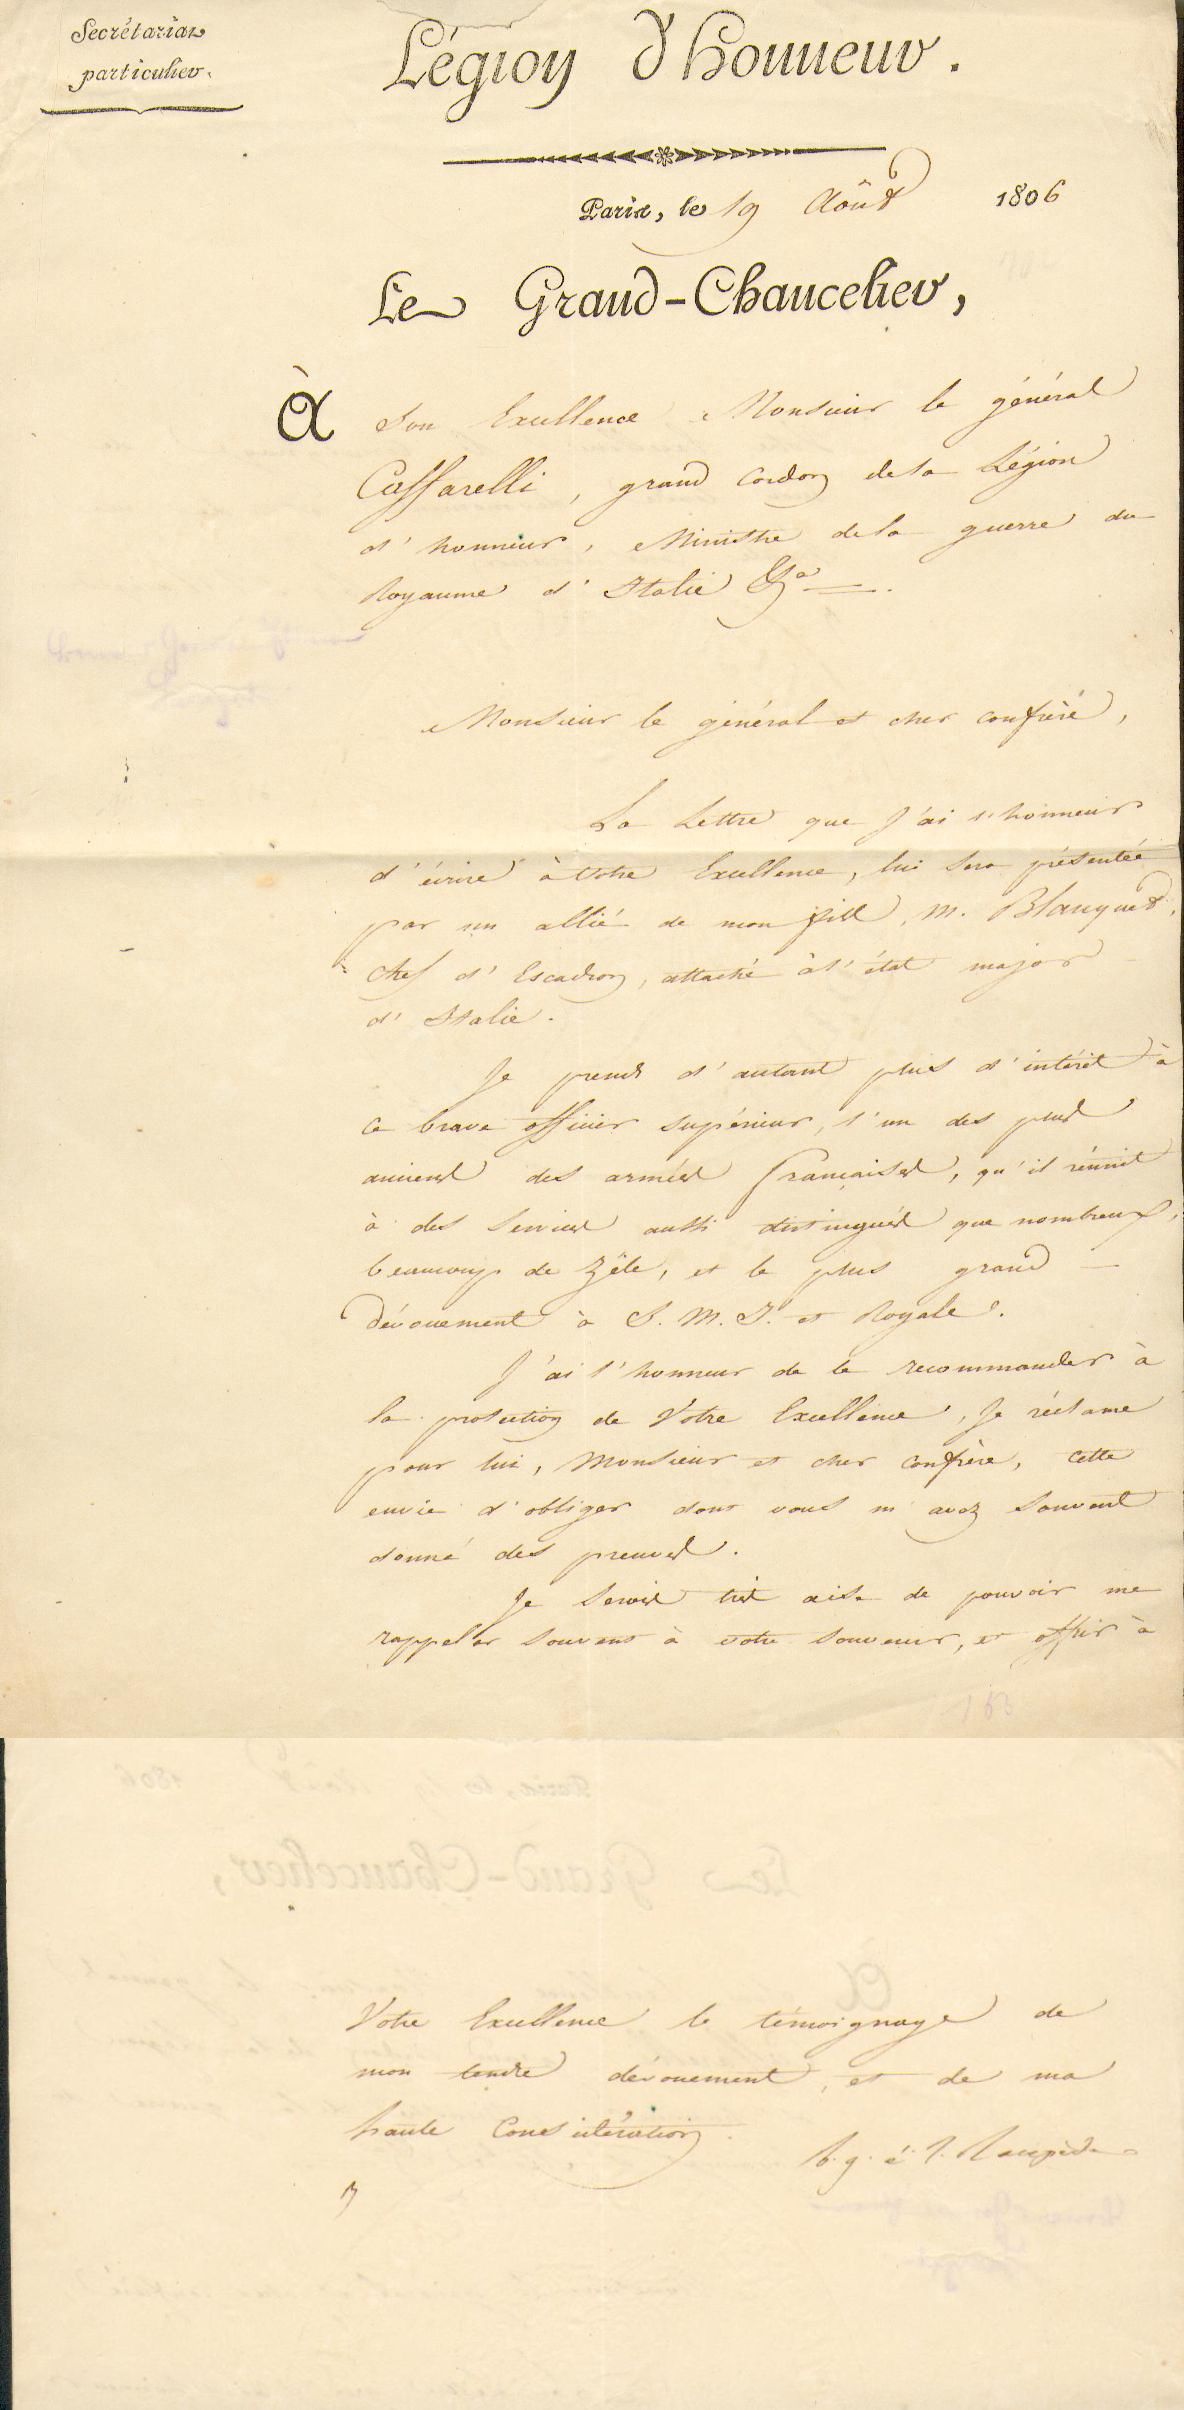 Secrétariat
particulier.
Légion d'honneur.
Paris, le 19 Août 1806
Le Grand-Chancelier,
À Son Excellence Monsieur le général
Caffarelli, grand cordon de la Légion
d'honneur, Ministre de la guerre du
Royaume d'Italie &a.
Monsieur le général et cher confrère,
La Lettre que j'ai l'honneur
d'écrire à Votre Excellence, lui sera présentée
par un allié de mon fils, M. Blanquet,
chef d'Escadron, attaché à l'état major
d'Italie.
Je prends d'autant plus d'intérêt à
ce brave officier supérieur, l'un des plus
anciens des armées françaises, qu'il réunit
à des services aussi distingués que nombreux,
beaucoup de zèle, et le plus grand
dévouement à S. M. I. et Royale.
J'ai l'honneur de le recommander à
la protection de Votre Excellence, Je réclame
pour lui, Monsieur et cher confrère, cette
envie d'obliger dont vous m'avez souvent
donné des preuves.
Je serois très aise de pouvoir me
rappeler souvent à votre souvenir, et offrir à
Votre Excellence le témoignage de
mon tendre dévouement, et de ma
haute considération.
B. g. é. l. Lacépède